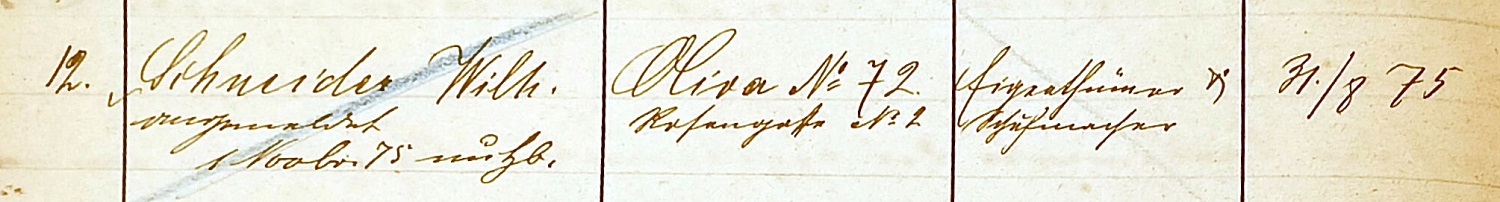 12. Schneider Wilh. Oliva No 72. Eigenthümer & 31./8 75
angemeldet Rosengasse No 2 Schuhmacher
1 Novbr 75